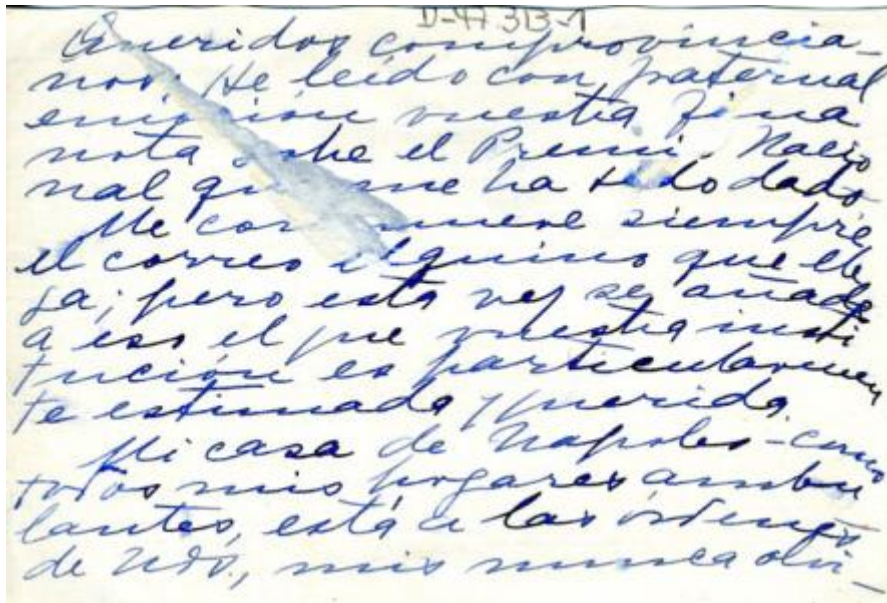 D-47.313-1
Queridos comprovincia-
nos: He leído con fraternal
emoción vuestra fina
nota sobe el Premi Nacio
nal que me ha sido dado
Me conmueve siempre
el correo elquino que lle
ga; pero esta vez se añade
a eso el que vuestra insti
tución es particularmen
te estimada y querida.
Mi casa de Napoles - como
todos mis hogares ambu
lantes, está a las órdenes
de Uds, mis nunca olvi-